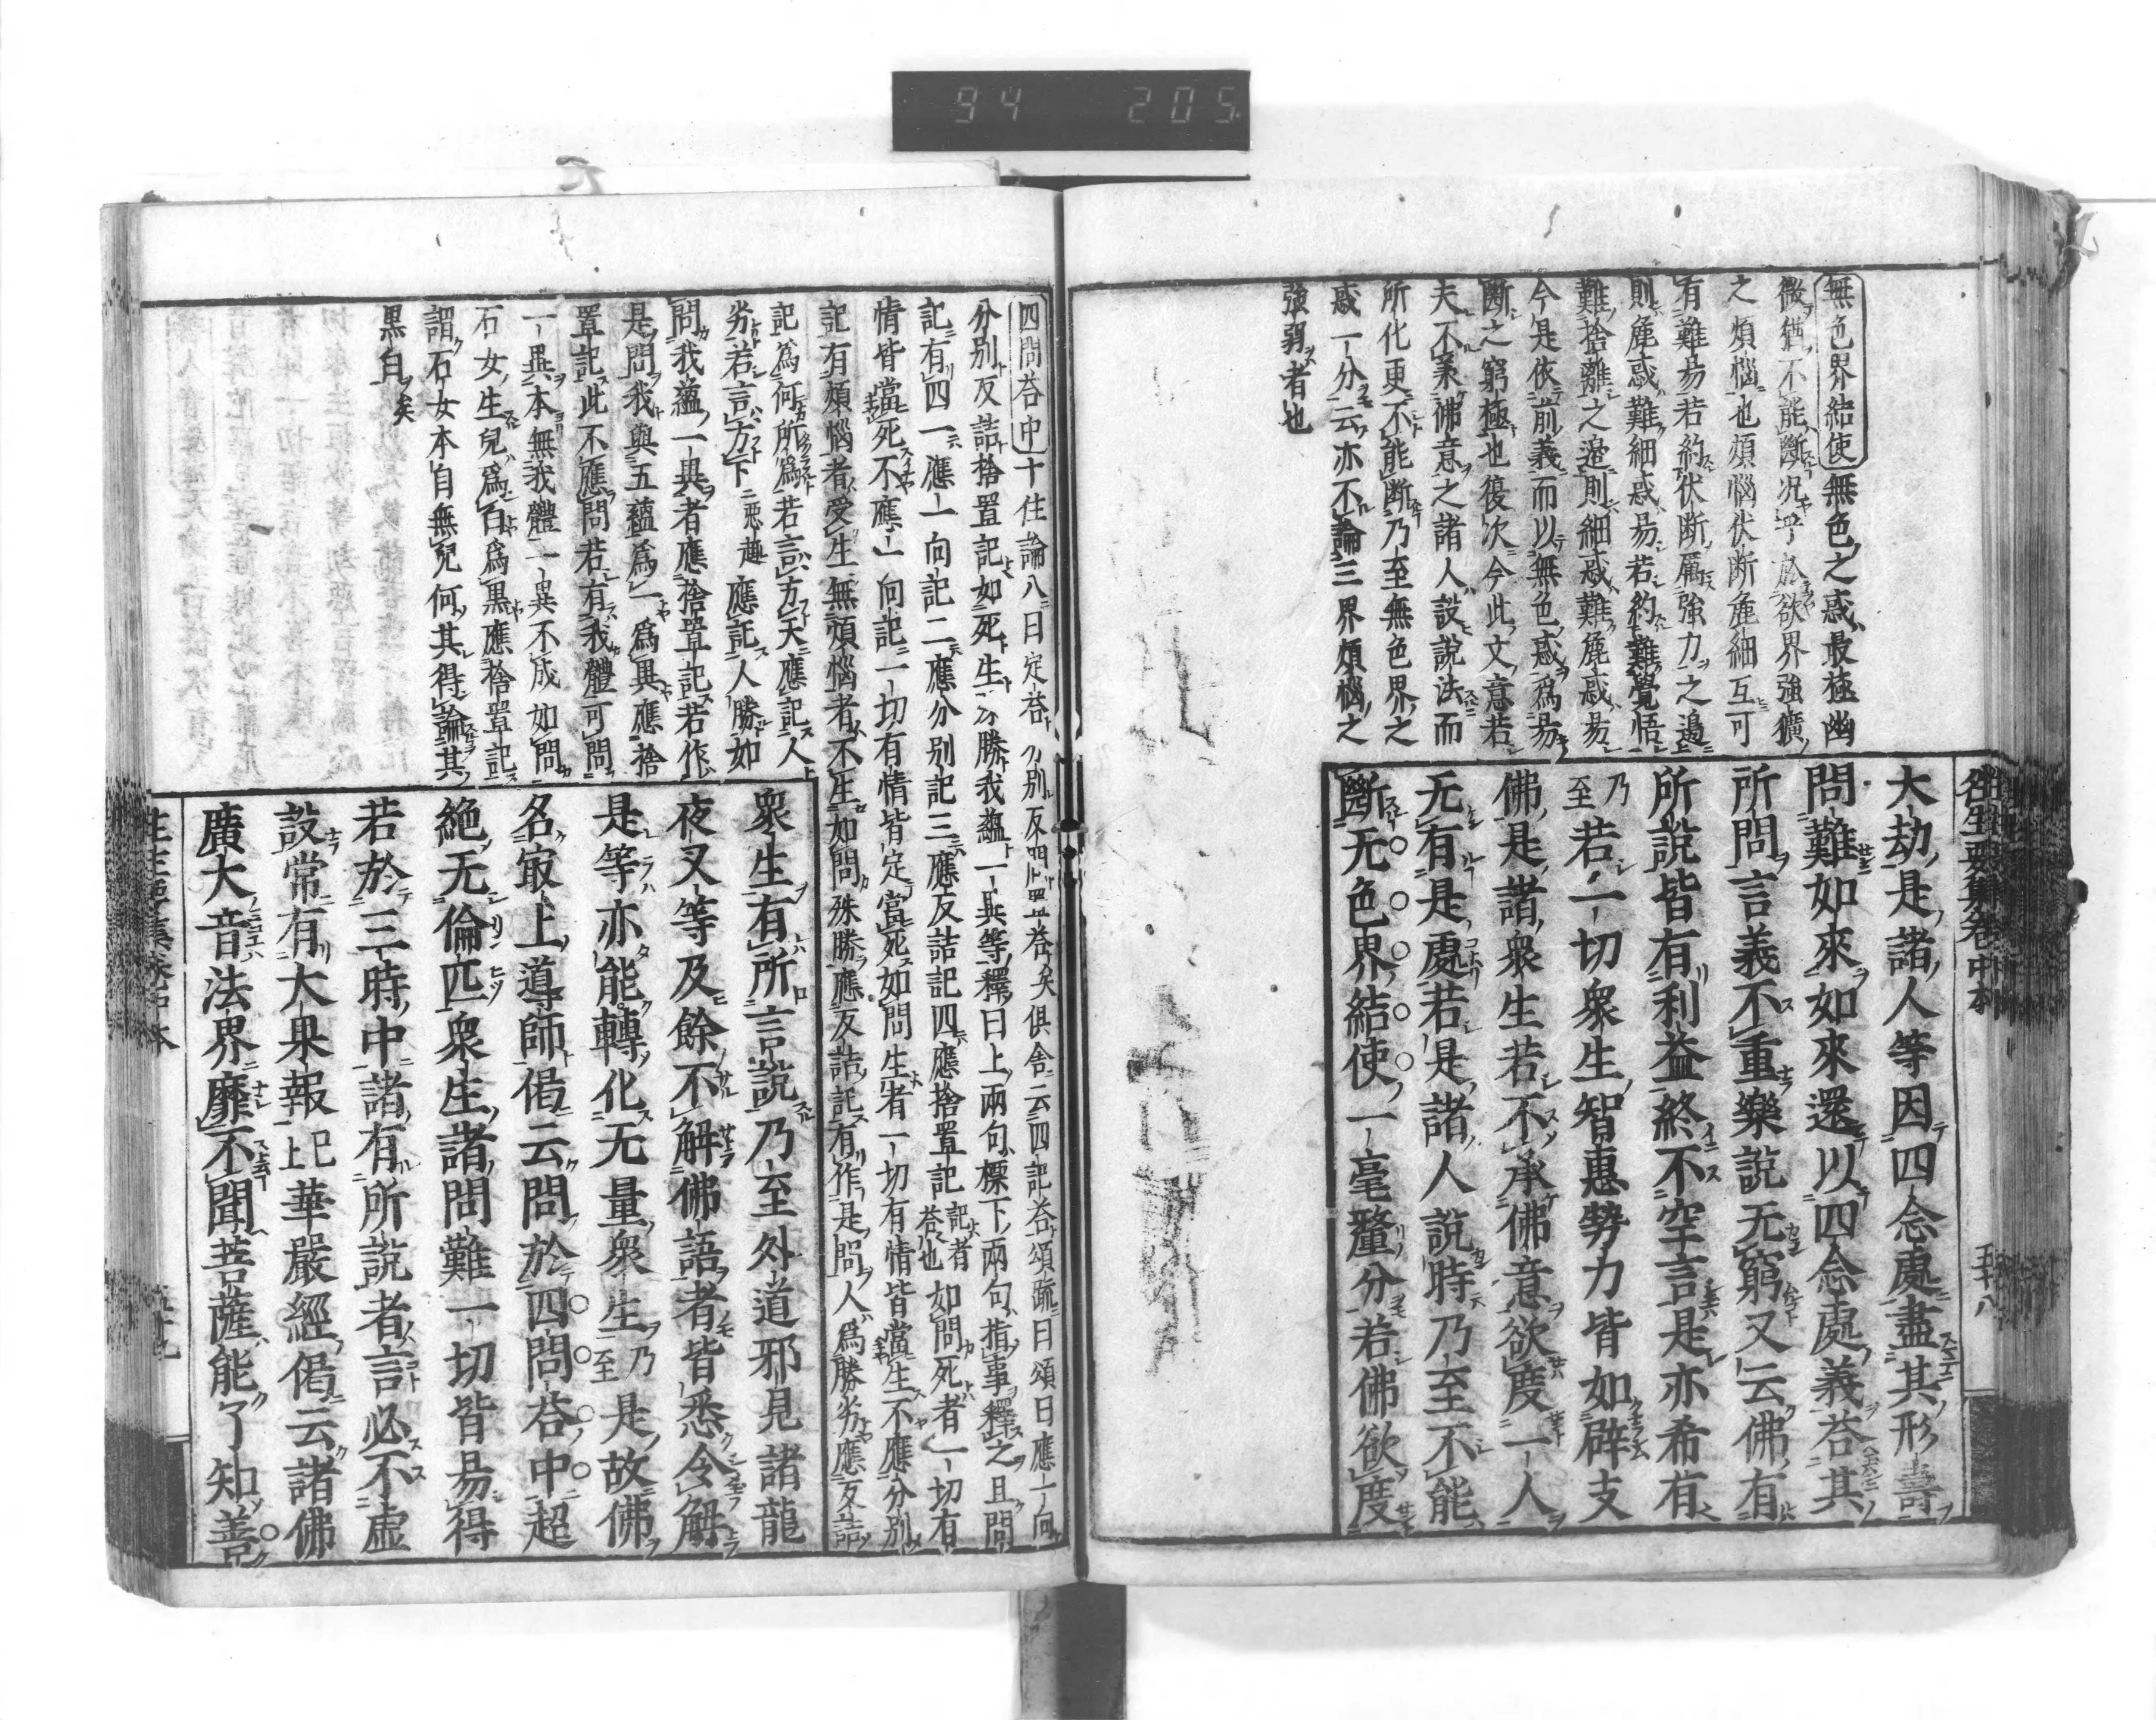 94 205
無色界結使無色之惑最極幽
微猶不能斷況乎於欲界強獷
之煩惱也煩惱伏斷麁細互可
有難易若約伏斷厲強力之邊
則麁惑難細惑易若約難覺悟
難捨離之邊則細惑難麁惑易
今是依前義而以無色惑爲易
斷之窮極也復次今此文意若
夫不承佛意之諸人設說法而
所化更不能斷乃至無色界之
惑一分云亦不論三界煩惱之
強弱者也
往生要集卷中本
五十八
大劫是諸人等因四念處盡其形壽
問難如來如來還以四念處義荅其
所問言義不重樂說无窮又云佛有
所說皆有利益終不空言是亦希有
乃至若一切衆生智惠勢力皆如辟支
佛是諸衆生若不承佛意欲度一人
无有是處若是諸人說時乃至不能
斷无色界結使一毫釐分若佛欲度
四問荅中十住論八曰定荅分別反問置荅矣俱舍云四記荅頌疏曰頌曰應一向
分別反詰捨置記如死生殊勝我蘊一異等釋曰上兩句標下兩句指事釋之且問
記有四一應一向記二應分別記三應反詰記四應捨置記記者荅也如問死者一切有
情皆當死不應一向記一切有情皆定當死如問生者一切有情皆當生不應分別
記有煩惱者受生無煩惱者不生如問殊勝應反詰記有作是問人爲勝劣應反詰
記爲何所爲若言方天應記人
劣若言方下惡趣應記人勝如
問我蘊一異者應捨置記若作
是問我與五蘊爲一爲異應捨
置記此不應問若有我體可問
一異本無我體一異不成如問
石女生兒爲白爲黑應捨置記
謂石女本自無兒何其得論其
黑白矣
衆生有所言說乃至外道邪見諸龍
夜叉等及餘不解佛語者皆悉令解
是等亦能轉化无量衆生乃至是故佛
名㝡上導師偈云問於四問荅中超
絶无倫匹衆生諸問難一切皆易得
若於三時中諸有所說者言必不虛
設常有大果報已上華嚴經偈云諸佛
廣大音法界靡不聞菩薩能了知善